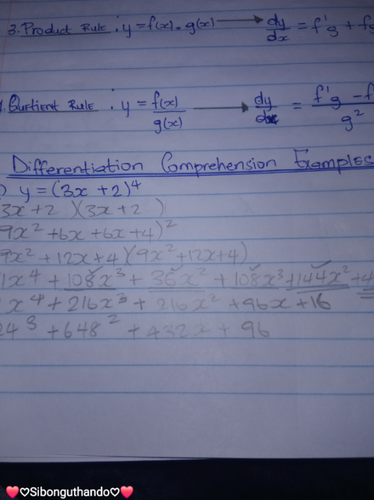 3. Product Rule . y = f(x) . g(x) → dy/dx = f'g + f
Quotient Rule . y = f(x)/g(x) → dy/dx = f'g - f / g²
Differentiation Comprehension Examples
y = (3x + 2)⁴
3x + 2 )(3x + 2 )
9x² + 6x + 6x + 4)²
9x² + 12x + 4)(9x² + 12x + 4)
1x⁴ + 108x³ + 36x² + 108x³ + 144x² + 4
x⁴ + 216x³ + 216x² + 96x + 16
24³ + 648² + 432x + 96
❤️♡Sibonguthando♡❤️